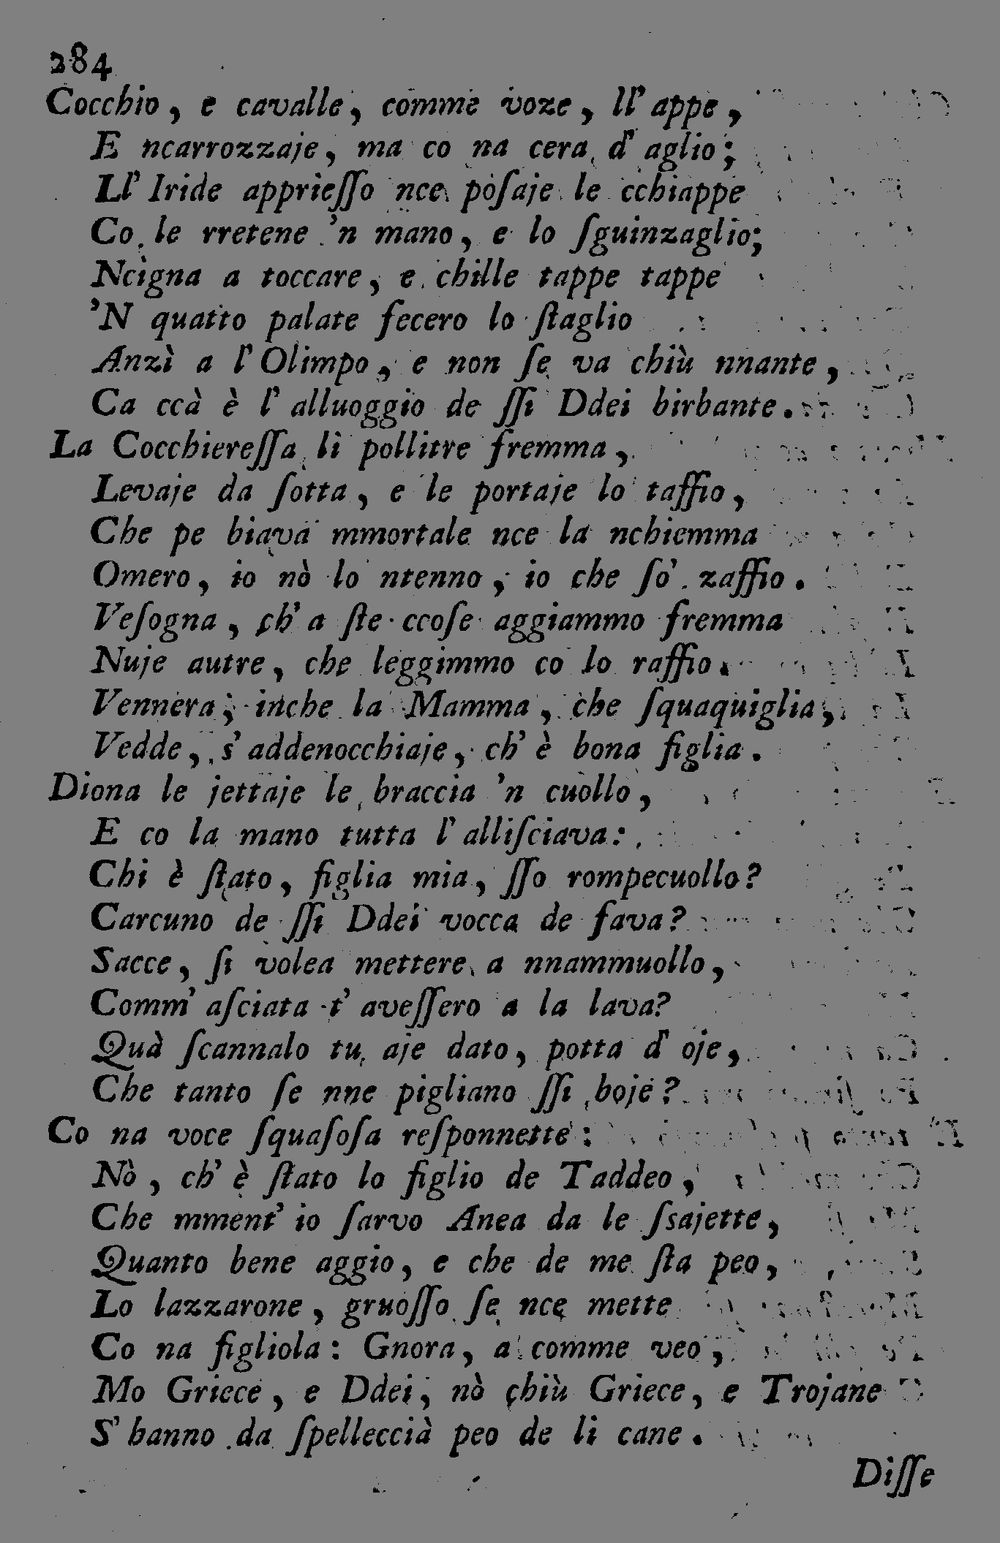 284
Cocchio, e cavalle, comme voze, ll' appe,
E ncarrozzaje, ma co na cera d' aglio;
Ll' Iride apprieſſo nce poſaje le cchiappe
Co le rretene 'n mano, e lo ſguinzaglio;
Ncigna a toccare, e chille tappe tappe
'N quatto palate fecero lo ſtaglio
Anzì a l' Olimpo, e non ſe va chiù nnante,
Ca ccà è l' alluoggio de ſſi Ddei birbante.
La Cocchiereſſa li pollitre fremma,
Levaje da ſotta, e le portaje lo taffio,
Che pe biava mmortale nce la nchiemma
Omero, io nò lo ntenno, io che ſo' zaffio.
Veſogna, ch' a ſte ccoſe aggiammo fremma
Nuje autre, che leggimmo co lo raffio.
Vennera, inche la Mamma, che ſquaquiglia,
Vedde, s' addenocchiaje, ch' è bona figlia.
Diona le jettaje le braccia 'n cuollo,
E co la mano tutta l' alliſciava:
Chi è ſtato, figlia mia, ſſo rompecuollo?
Carcuno de ſſi Ddei vocca de fava?
Sacce, ſi volea mettere a nnammuollo,
Comm' aſciata t' aveſſero a la lava?
Quà ſcannalo tu aje dato, potta d' oje,
Che tanto ſe nne pigliano ſſi boje?
Co na voce ſquaſoſa reſponnette:
Nò, ch' è ſtato lo figlio de Taddeo,
Che mment' io ſarvo Anea da le ſsajette,
Quanto bene aggio, e che de me ſta peo,
Lo lazzarone, gruoſſo ſe nce mette
Co na figliola: Gnora, a comme veo,
Mo Griece, e Ddei, nò chiù Griece, e Trojane
S' hanno da ſpelleccià peo de li cane.
Diſſe